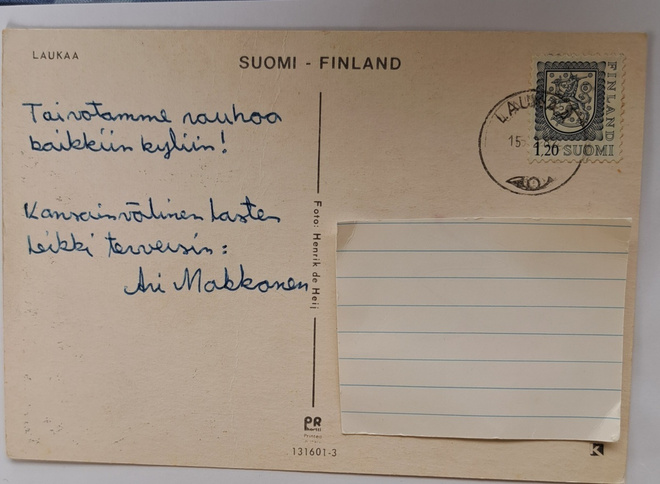 LAUKAA
SUOMI - FINLAND
Toivotamme rauhaa
kaikkiin kyliin!
Kansainvälinen Lasten
Leikki terveisin:
Ari Makkonen
Foto: Henrik de Heij
FINLAND
1,20 SUOMI
LAUKAA
15
PR
131601-3
K